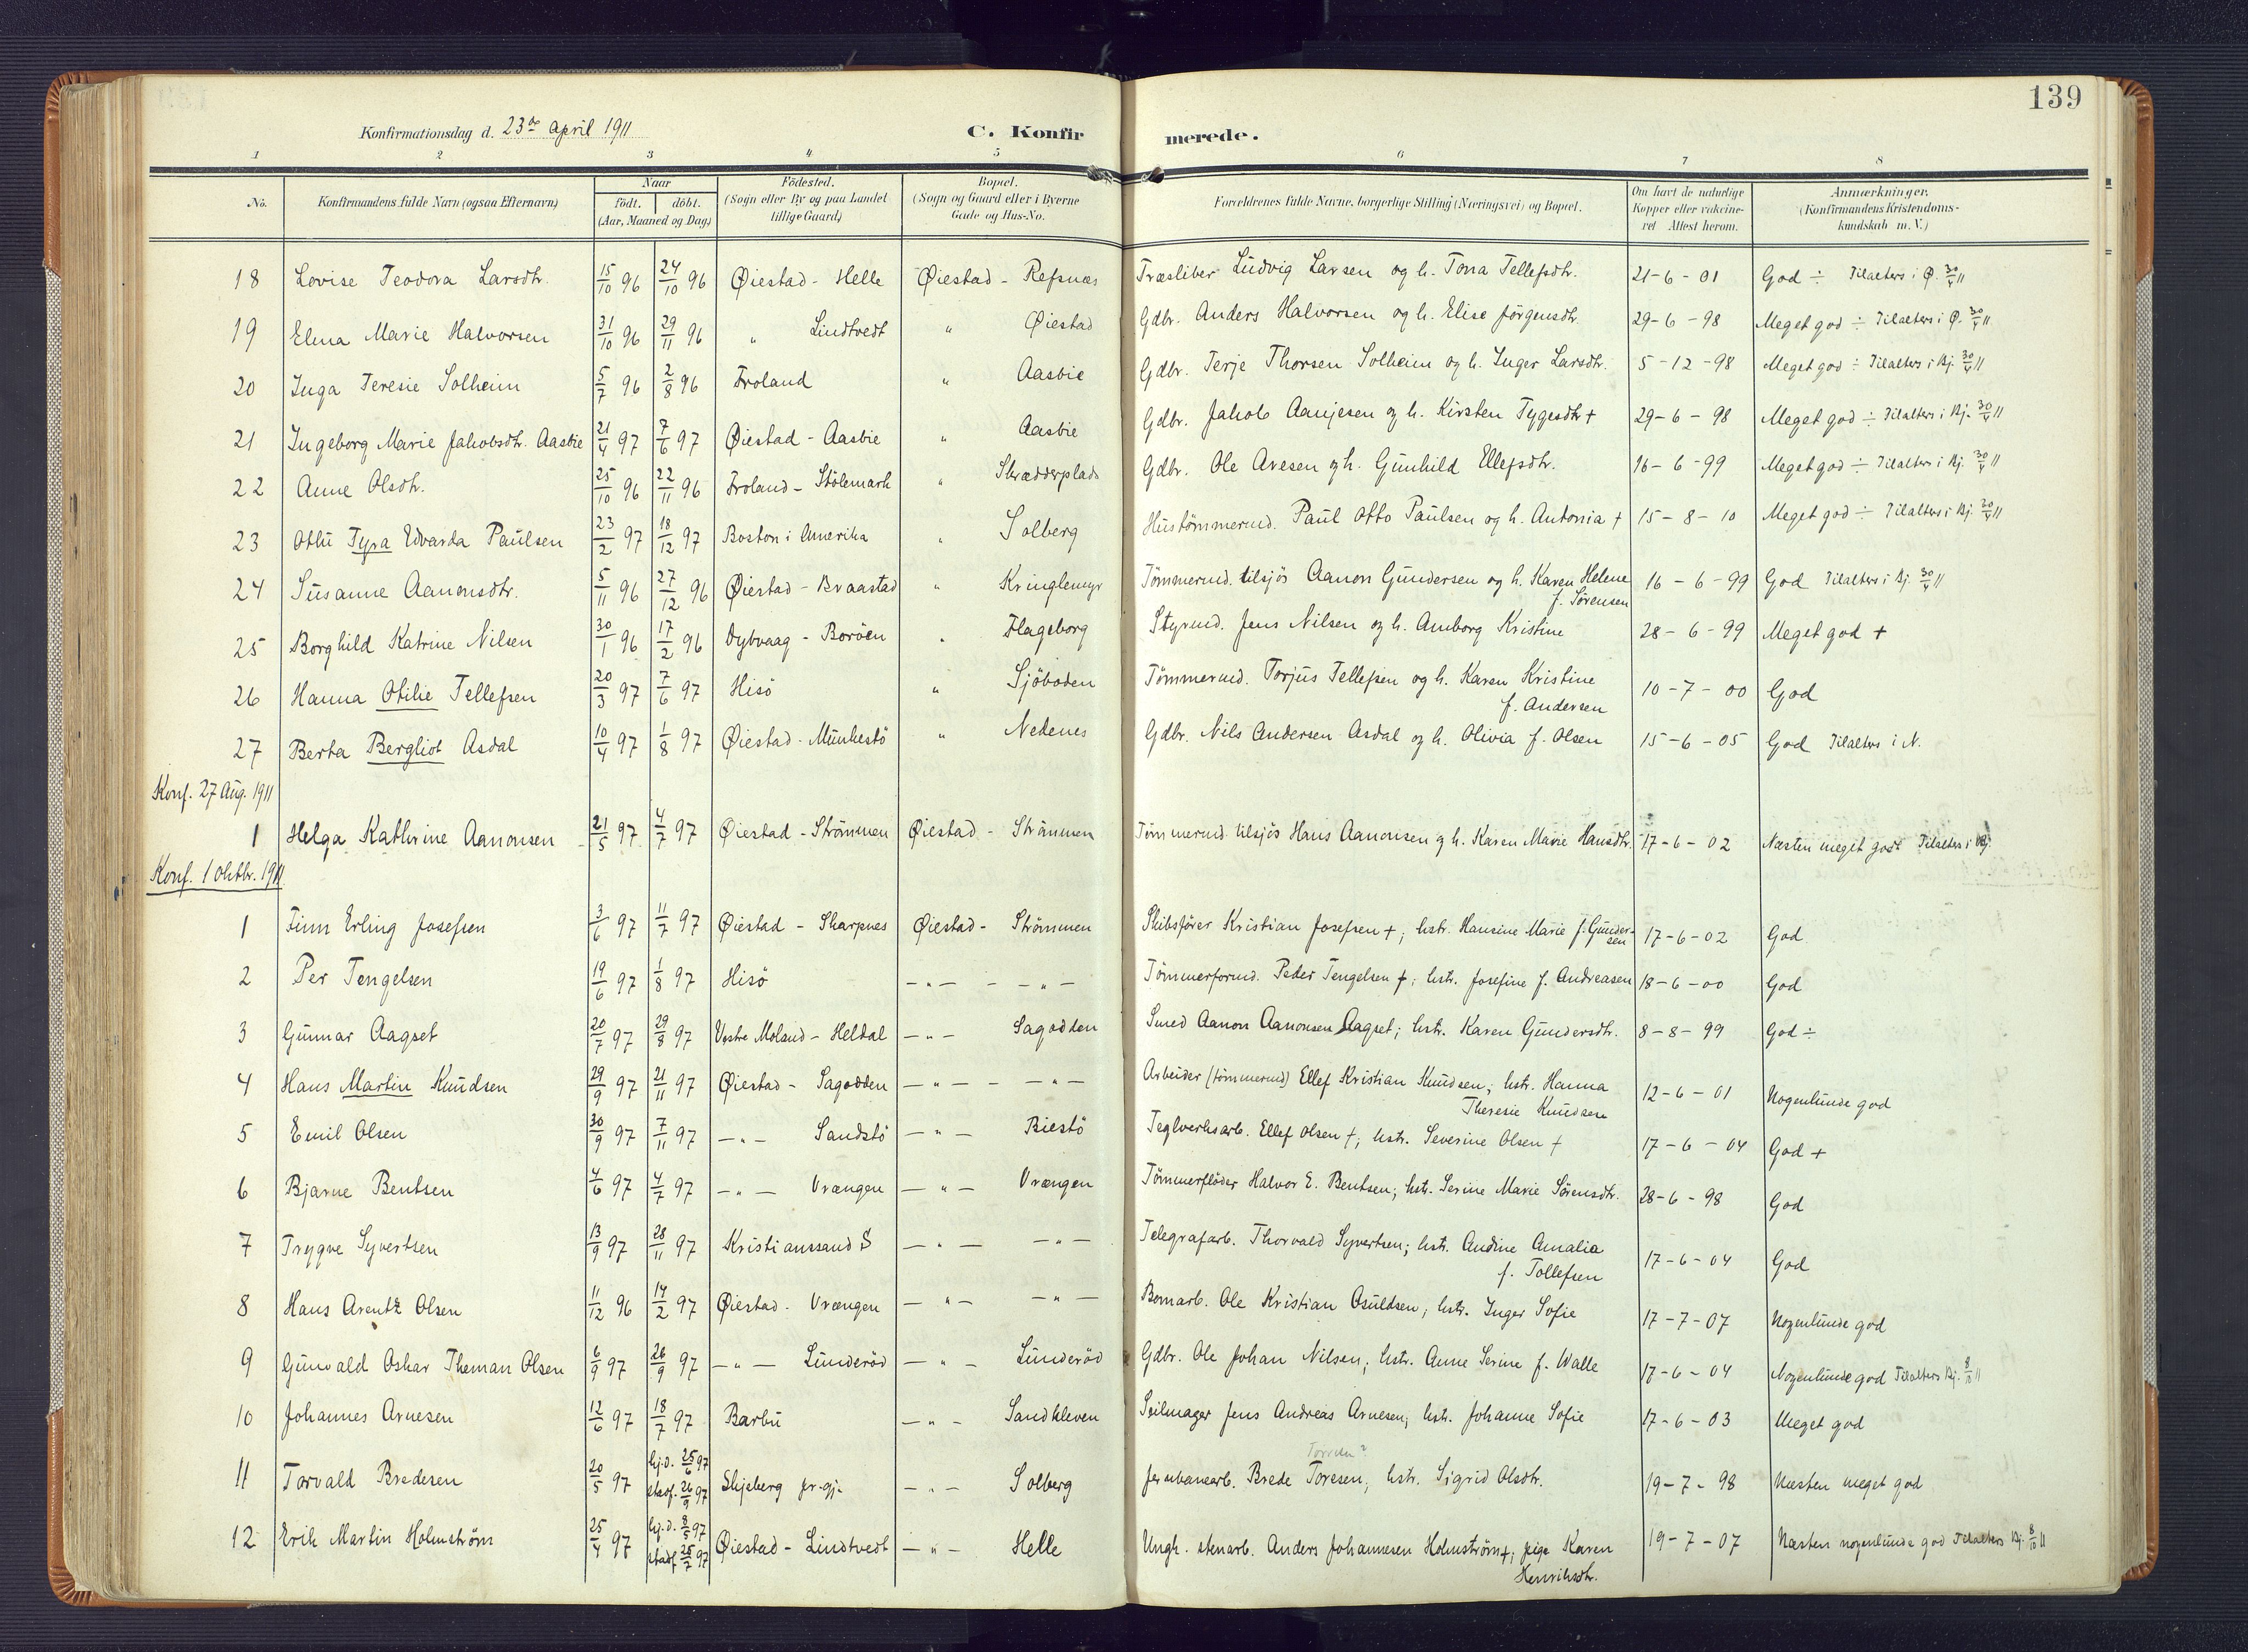 139
Konfirmationsdag d. 23de april 1911 C. Konfirmerede.
1 2 3 4 5 6 7 8
No. Konfirmandens fulde Navn (ogsaa Efternavn) Naar födt. döbt. (Aar, Maaned og Dag) Födested. (Sogn eller By og paa Landet tillige Gaard) Bopæl. (Sogn og Gaard eller i Byerne Gade og Hus-No. Forældrenes fulde Navne, borgerlige Stilling (Næringsvei) og Bopæl. Om havt de naturlige Kopper eller vakcineret Attest herom. Anmærkninger. (Konfirmandens Kristendomskundskab m. V.)
18 Lovise Teodora Larsdtr. 15/10 96 24/10 96 Øiestad - Helle Øiestad - Refsnæs Træsliber Ludvig Larsen og h. Tona Tellefsdtr. 21-6-01 God ÷ Tilalters i Ø. 30/4 11
19 Elena Marie Halvorsen 31/10 96 29/11 96 " Lindtvedt " Øiestad Gdbr. Anders Halvorsen og h. Elise Jörgensdtr. 29-6-98 Meget god ÷ Tilalters i Ø. 30/4 11
20 Inga Teresie Solheim 5/7 96 2/8 96 Froland " Aasbie Gdbr. Terje Thorsen Solheim og h. Inger Larsdtr. 5-12-98 Meget god ÷ Tilalters i Bj. 30/4 11
21 Ingeborg Marie Jakobsdtr. Aasbie 21/4 97 7/6 97 Øiestad - Aasbie " Aasbie Gdbr. Jakob Aanjesen og h. Kirsten Tygesdtr + 29-6-98 Meget god ÷ Tilalters i Bj. 30/4 11
22 Anne Olsdtr. 25/10 96 22/11 96 Froland - Stölemark " Skrædderplads Gdbr. Ole Aresen og h. Gunhild Ellefsdtr. 16-6-99 Meget god ÷ Tilalters i Bj. 30/4 11
23 Otlu Tyra Edvarda Paulsen 23/2 97 18/12 97 Boston i Amerika " Solberg Hustömmermd. Paul Otto Paulsen og h. Antonia + 15-8-10 Meget god ÷ Tilalters i Bj. 30/4 11
24 Susanne Aanonsdtr. 5/11 96 27/12 96 Øiestad - Braastad " Kringlemyr Tömmermd. tilsjös Aanon Gundersen og h. Karen Helene 16-6-99 God Tilalters i Bj. 30/4 11
f. Sörensen
25 Borghild Katrine Nilsen 30/1 96 17/2 96 Dybvaag - Boröen " Flageborg Styrmd. Jens Nilsen og h. Amborg Kristine 28-6-99 Meget god +
26 Hanna Otilie Tellefsen 20/3 97 7/6 97 Hisö " Sjöboden Tömmermd. Torjus Tellefsen og h. Karen Kristine 10-7-00 God
f. Andersen
27 Berta Bergliot Asdal 10/4 97 1/8 97 Øiestad - Munkestö " Nedenes Gdbr. Nils Andersen Asdal og h. Olivia f. Olsen 15-6-05 God Tilalters i N.
Konf. 27 Aug. 1911
1 Helga Kathrine Aanonsen 21/5 97 4/7 97 Øiestad - Strömmen Øiestad - Strömmen Tömmermd. tilsjös Hans Aanonsen og h. Karen Marie Hansdtr. 17-6-02 Næsten meget godt Tilalters i Bj.
Konf. 1 Oktbr. 1911
1 Finn Erling Josefsen 3/6 97 11/7 97 Øiestad - Skarpnes Øiestad - Strömmen Skibsförer Kristian Josefsen +; hstr. Hansine Marie f. Gundersen 17-6-02 God
2 Per Tengelsen 19/6 97 1/8 97 Hisö - " - - " - Tömmerformd. Peder Tengelsen +; hstr. Josefine f. Andreasen 18-6-00 God
3 Gunnar Aagset 20/7 97 29/8 97 Vestre Moland - Heldal - " - Sagodden Smed Aanon Aanonsen Aagset; hstr. Karen Gundersdtr. 8-8-99 God ÷
4 Hans Martin Knudsen 29/9 97 21/11 97 Øiestad - Sagodden - " - - " - Arbeider (tömmermd) Ellef Kristian Knudsen; hstr. Hanna 12-6-01 Nogenlunde god
Theresie Knudsen
5 Emil Olsen 30/9 97 7/11 97 - " - Sandstö - " - Biestö Teglverksarb. Ellef Olsen +; hstr. Severine Olsen + 17-6-04 God +
6 Bjarne Bentsen 4/6 97 4/7 97 - " - Vrængen - " - Vrængen Tömmerflöder Halvor E. Bentsen; hstr. Serine Marie Sörensdtr. 28-6-98 God
7 Trygve Syvertsen 13/9 97 28/11 97 Kristianssand S - " - - " - Telegrafarb. Thorvald Syvertsen; hstr. Andine Amalia 17-6-04 God
f. Tollefsen
8 Hans Arentz Olsen 11/12 96 14/2 97 Øiestad - Vrængen - " - - " - Bomarb. Ole Kristian Osuldsen; hstr. Inger Sofie 17-7-07 Nogenlunde god
9 Gunvald Oskar Theman Olsen 6/9 97 26/9 97 - " - Lunderöd - " - Lunderöd Gdbr. Ole Johan Nilsen; hstr. Anne Serine f. Walle 17-6-04 Nogenlunde god Tilalters Bj. 8/10 11
10 Johannes Arnesen 12/6 97 18/7 97 Barbu - " - Sandkleven Seilmager Jens Andreas Arnesen; hstr. Johanne Sofie 17-6-03 Meget god
11 Torvald Bredesen 20/5 97 hj.d. 25/6 97 stadf. 26/9 97 Skjeberg pr.gj. - " - Solberg Jernbanearb. Brede Toresen; hstr. Sigrid Olsdtr. 19-7-98 Næsten meget god
12 Erik Martin Holmström 25/4 97 hj.d. 8/5 97 stadf 25/7 97 Øiestad - Lindtvedt - " - Helle Ungk. stenarb. Anders Johannesen Holmström +; pige Karen 19-7-07 Næsten nogenlunde god Tilalters Bj. 8/10 11
Henriksdtr.